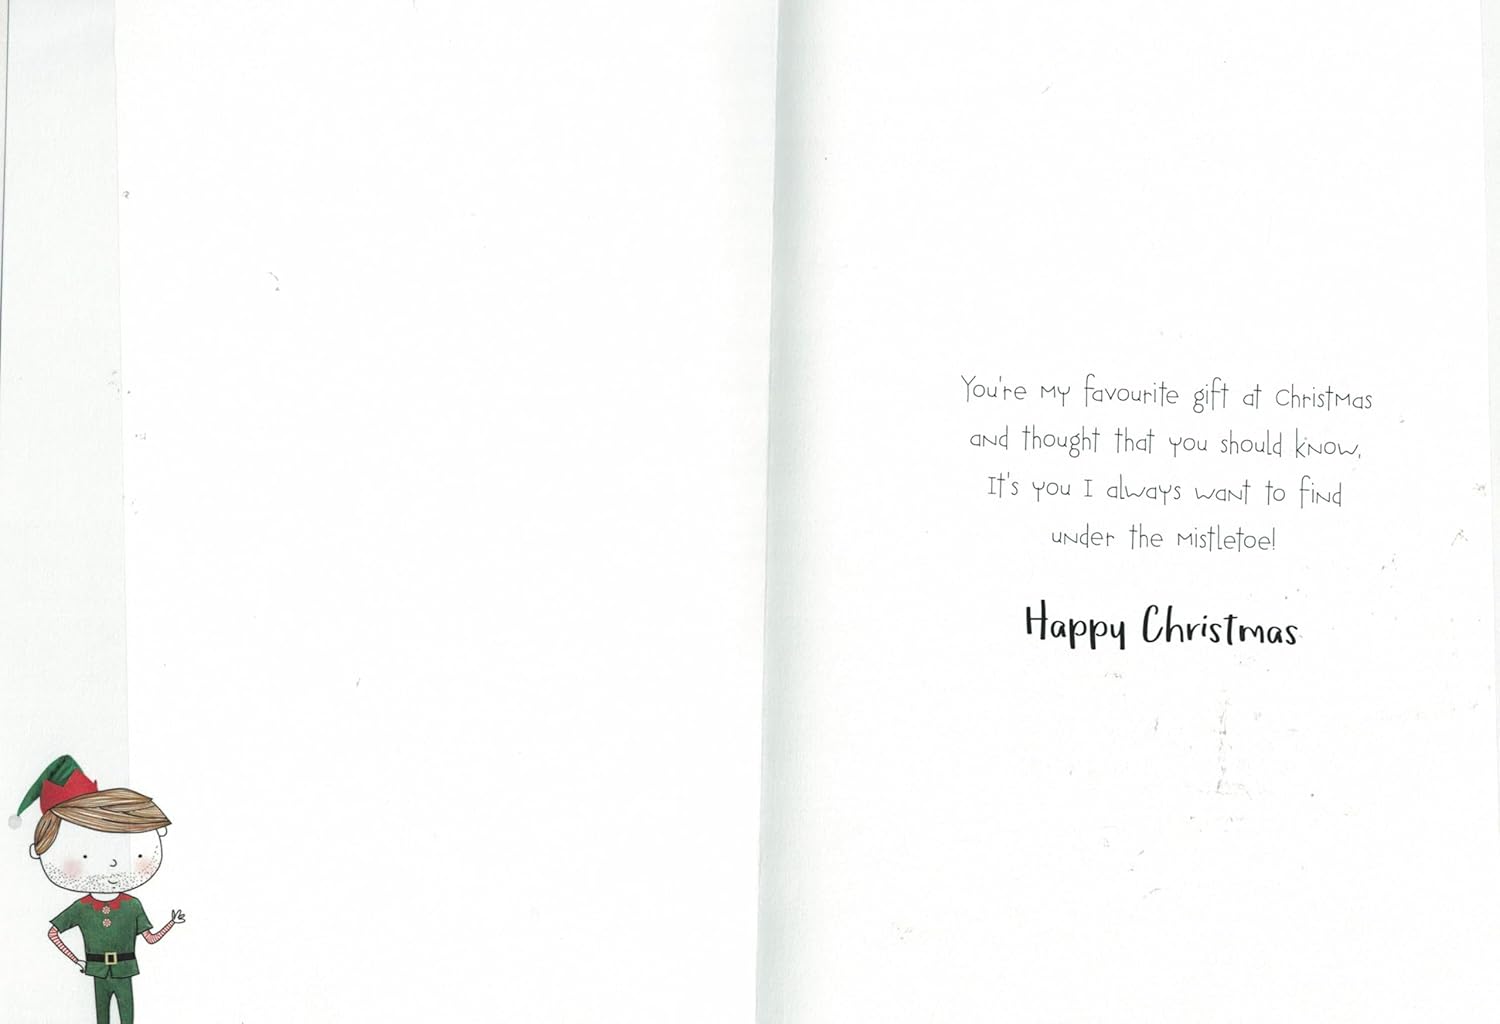 You're my favourite gift at Christmas
and thought that you should know,
It's you I always want to find
under the mistletoe!
Happy Christmas